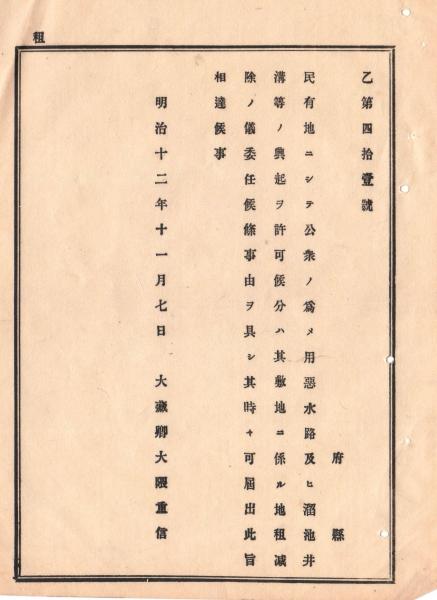 租
乙第四拾壹號
府縣
民有地ニシテ公衆ノ爲メ用惡水路及ヒ溜池井
溝等ノ興起ヲ許可候分ハ其敷地ニ係ル地租减
除ノ儀委任候條事由ヲ具シ其時々可届出此旨
相達候事
明治十二年十一月七日 大藏卿大隈重信